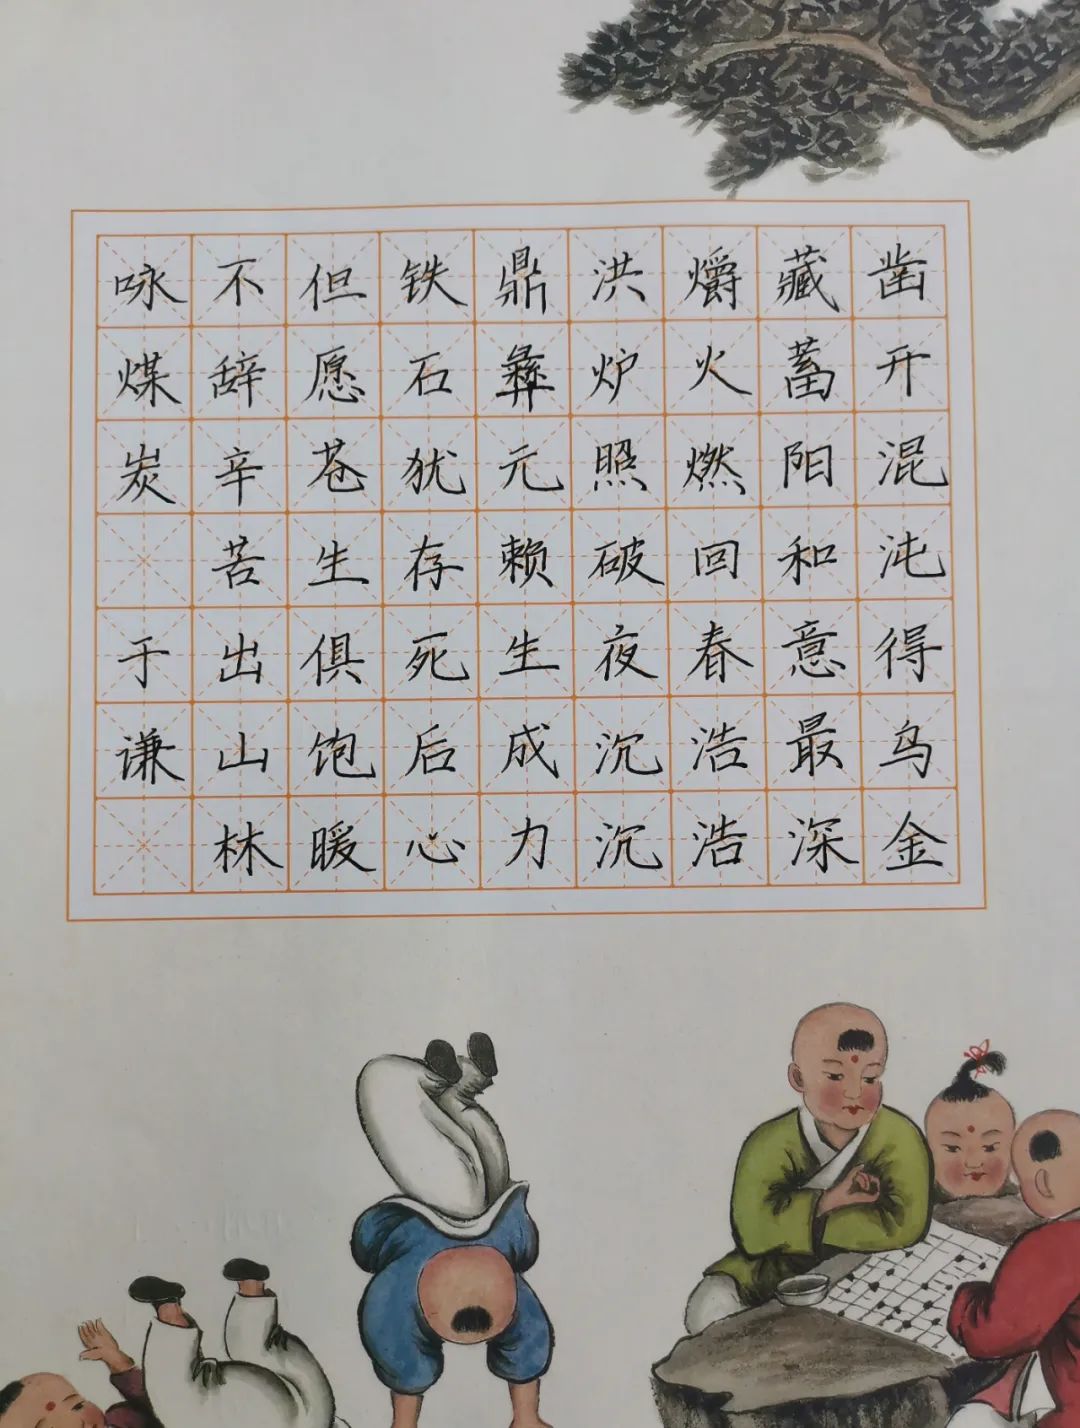 凿开混沌得乌金
藏蓄阳和意最深
爝火燃回春浩浩
洪炉照破夜沉沉
鼎彝元赖生成力
铁石犹存死后心
但愿苍生俱饱暖
不辞辛苦出山林
咏煤炭 于谦